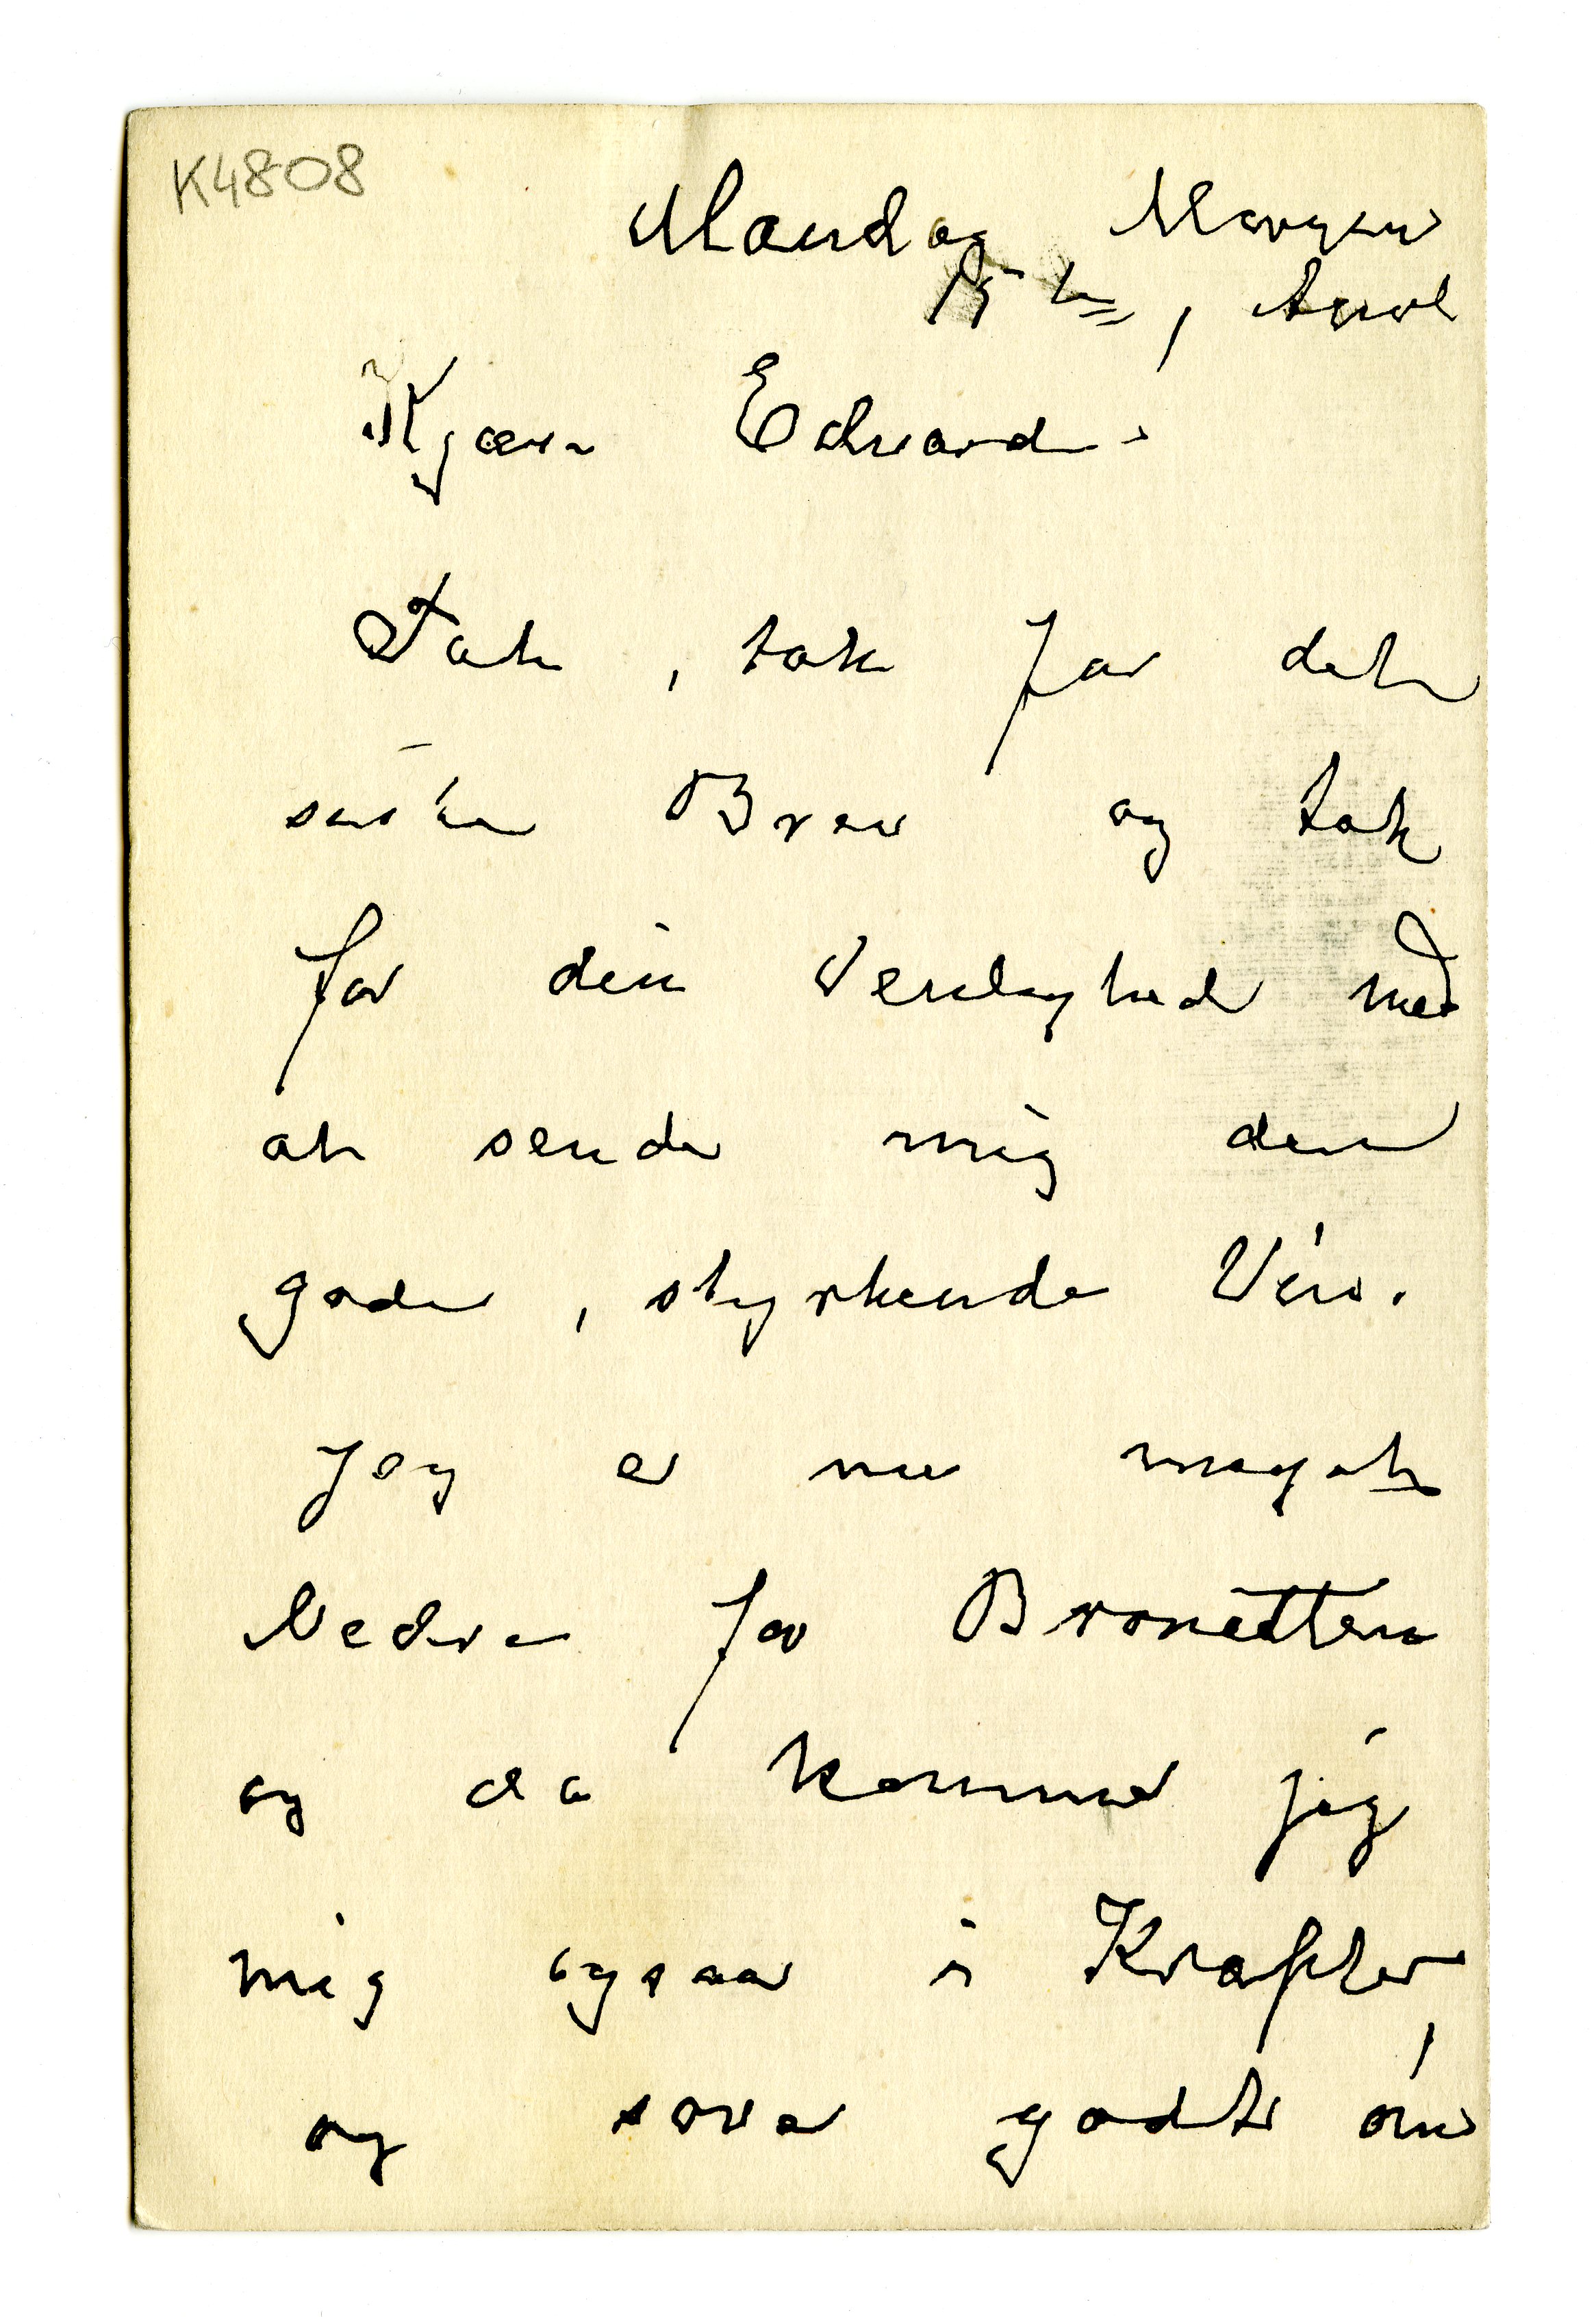 K4808
Mandag Morgen
15de, April
Kjære Edvard
Tak, tak for det
søde Brev og tak
for din Venlighed med
at sende mig den
gode, styrkende Vin.
Jeg er nu meget
bedre for Bronetten
og da kommer jeg
mig ogsaa i Kræfter,
og sover godt om